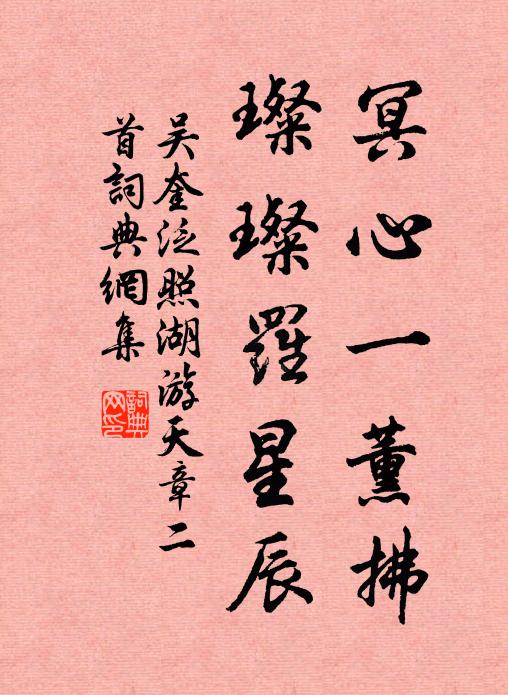 冥心一薰拂
璨璨羅星辰
吴奎泛照湖游天章二
首詞典網集
詞典网印